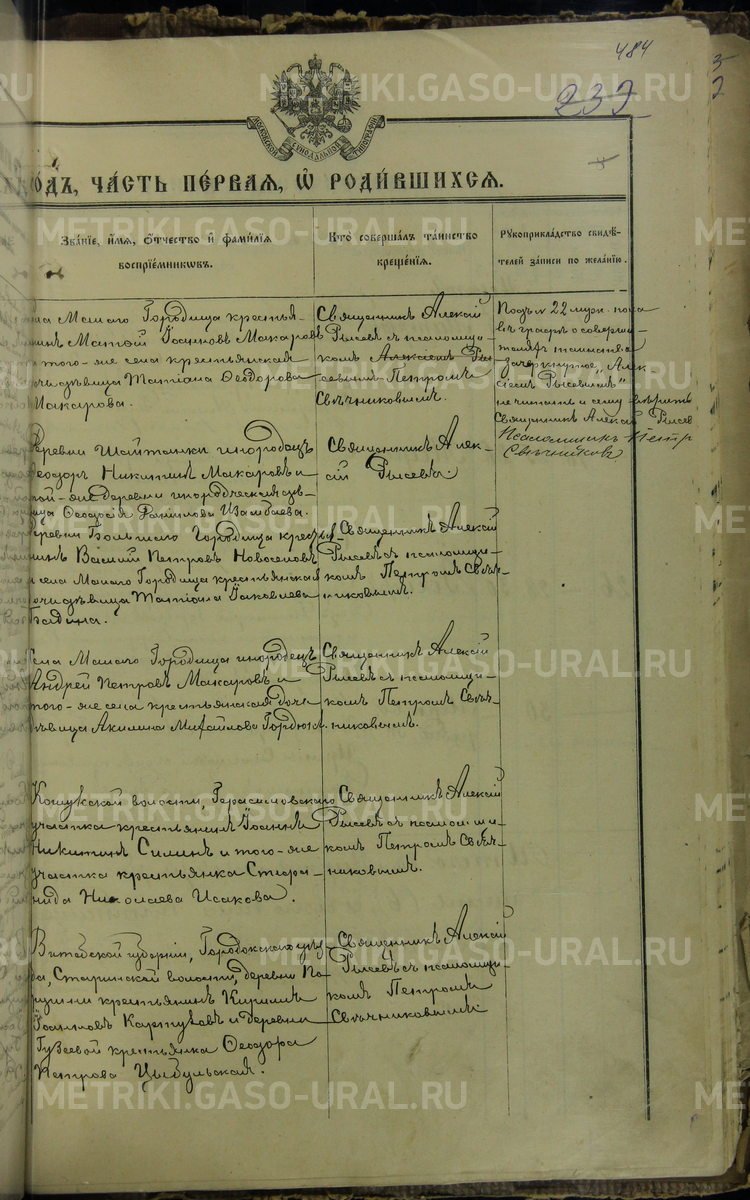 484
232
МОСКОВСКОЙ СѴНОДАЛЬНОЙ ТИПОГРАФІИ
ЧА́СТЬ ПЕ́РВАЯ, Ѽ РОДИ́ВШИХСЯ.
Зва́нїе, и҆́мя, ѻ҆́тчество и҆ фами́лїя
воспрїе́мникѡвъ.
Кто̀ соверша́лъ та́инство
креще́нїя.
Рꙋкоприкла́дство свидѣ́-
телей за́писи по жела́нїю.
Села Малаго Городища крестья-
нинъ Матѳей Іоанновъ Макаровъ
и того-же села крестьянская
дочь дѣвица Татіана Ѳеодорова
Макарова.
Священникъ Алексій
Рысевъ съ псаломщи-
комъ Алексѣемъ Ры-
севымъ Петромъ
Свѣчниковымъ.
Подъ № 22 муж. пола
въ графѣ о соверши-
теляхъ таинства
зачеркнутое „Алек-
сѣемъ Рысевымъ"
не читать и сему вѣрить
Священникъ Алексій Рысев
Псаломщикъ Петр
Свѣчниковъ
Деревни Шайтанки инородецъ
Ѳеодоръ Никитинъ Макаровъ и
той-же деревни инородческая дѣ-
вица Ѳеодосія
Священникъ Алек-
сій Рысевъ.
Деревни Большаго Городища крестья-
нинъ Василій Петровъ Новоселовъ
и села Малаго Городища крестьянская
дочь дѣвица Татіана Іаковлева
Бабина.
Священникъ Алексій
Рысевъ съ псаломщи-
комъ Петромъ Свѣч-
никовымъ.
Села Малаго Городища инородецъ
Андрей Петровъ Макаровъ и
того-же села крестьянская дочь
дѣвица Акилина Михайлова
Священникъ Алексій
Рысевъ съ псаломщи-
комъ Петромъ Свѣч-
никовымъ.
Кошукской волости, Герасимовскаго
участка крестьянинъ Іоаннъ
Никитинъ Силинъ и того-же
участка крестьянка Стефа-
нида Николаева Исакова.
Священникъ Алексій
Рысевъ съ псаломщи-
комъ Петромъ Свѣч-
никовымъ.
Витебской губерніи, Городокскаго уѣз-
да, Старинской волости, деревни
крестьянинъ Кириллъ
Іоанновъ Карпуховъ и деревни
Гузеевой крестьянка Ѳеодора
Петрова Цыбульская.
Священникъ Алексій
Рысевъ съ псаломщи-
комъ Петромъ
Свѣчниковымъ.
METRIKI.GASO-URAL.RU